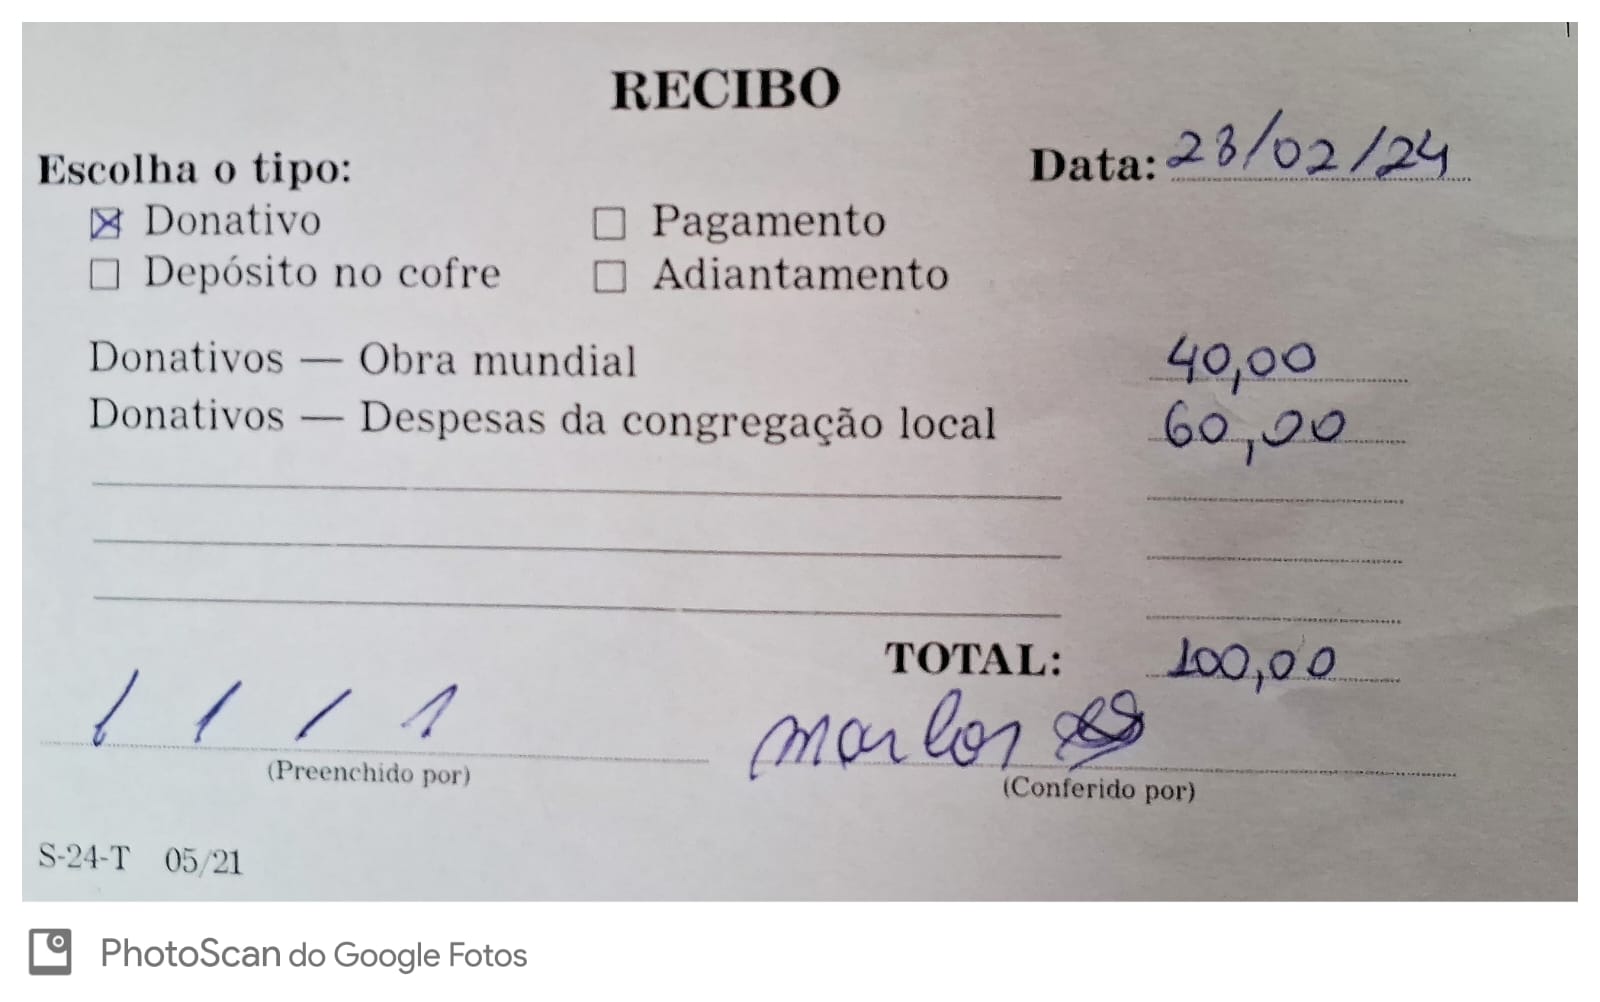 RECIBO
Escolha o tipo: Data: 28/02/24
☒ Donativo ☐ Pagamento
☐ Depósito no cofre ☐ Adiantamento
Donativos — Obra mundial 40,00
Donativos — Despesas da congregação local 60,00
TOTAL: 100,00
(Preenchido por) (Conferido por)
S-24-T 05/21
PhotoScan do Google Fotos